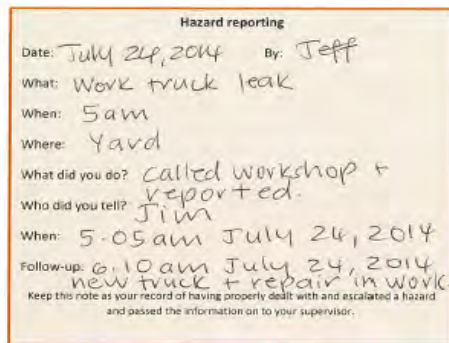 Hazard reporting
Date: July 24, 2014 By: Jeff
What: Work truck leak
When: 5am
Where: Yard
What did you do? called workshop +
reported.
Who did you tell? Jim
When: 5.05am July 24, 2014
Follow-up: 6.10am July 24, 2014
new truck + repair in work
Keep this note as your record of having properly dealt with and escalated a hazard
and passed the information on to your supervisor.